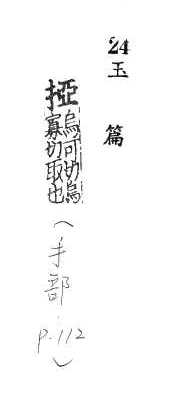 24
玉篇
掗烏可切烏寡切取也
(手部 P.112)